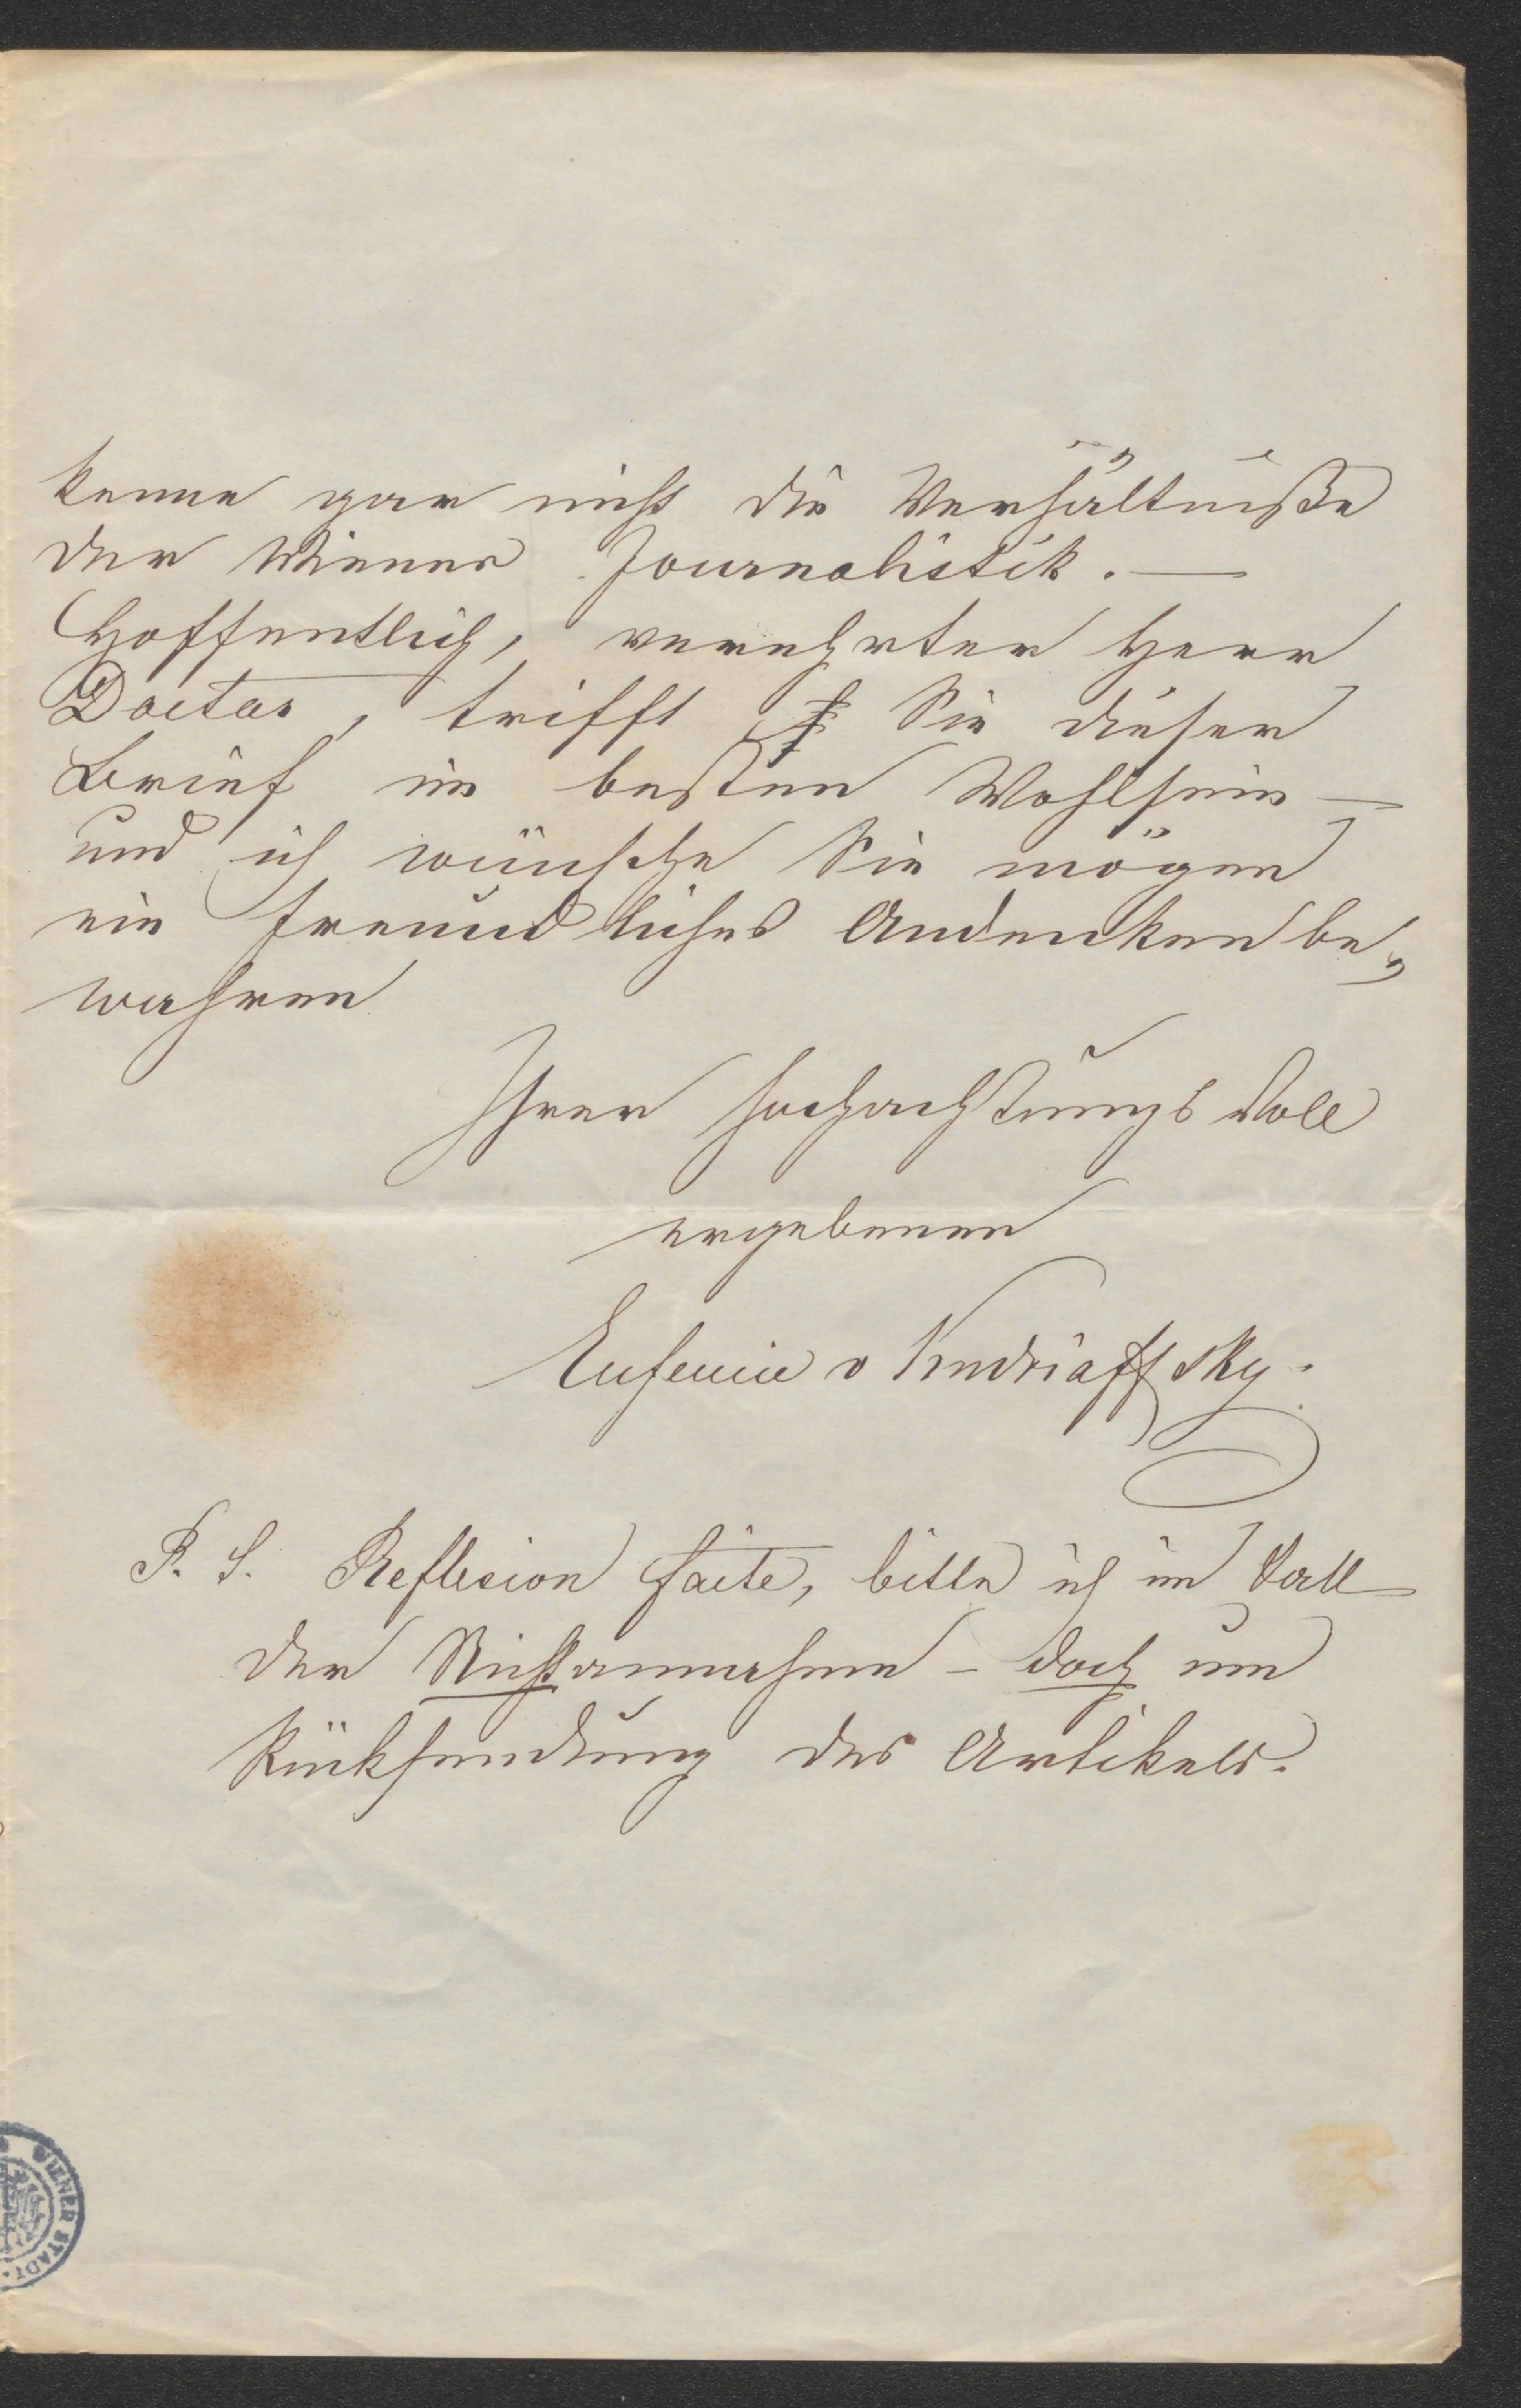 kenne gar nicht die Verhältniße
der Wiener Journalistik. —
Hoffentlich, verehrter Herr
Doctor, trifft Sie dieser
Brief im besten Wohlsein —
und ich wünsche Sie mögen
ein freundliches Andenken be-
wahren
Ihrer hochachtungsvoll
ergebenen
Eufemie v Kudriaffsky.
P. S. Reflexion faite, bitte ich im Fall
der Nichtannahme – doch um
Rücksendung des Artikels.
WIENER STADT-